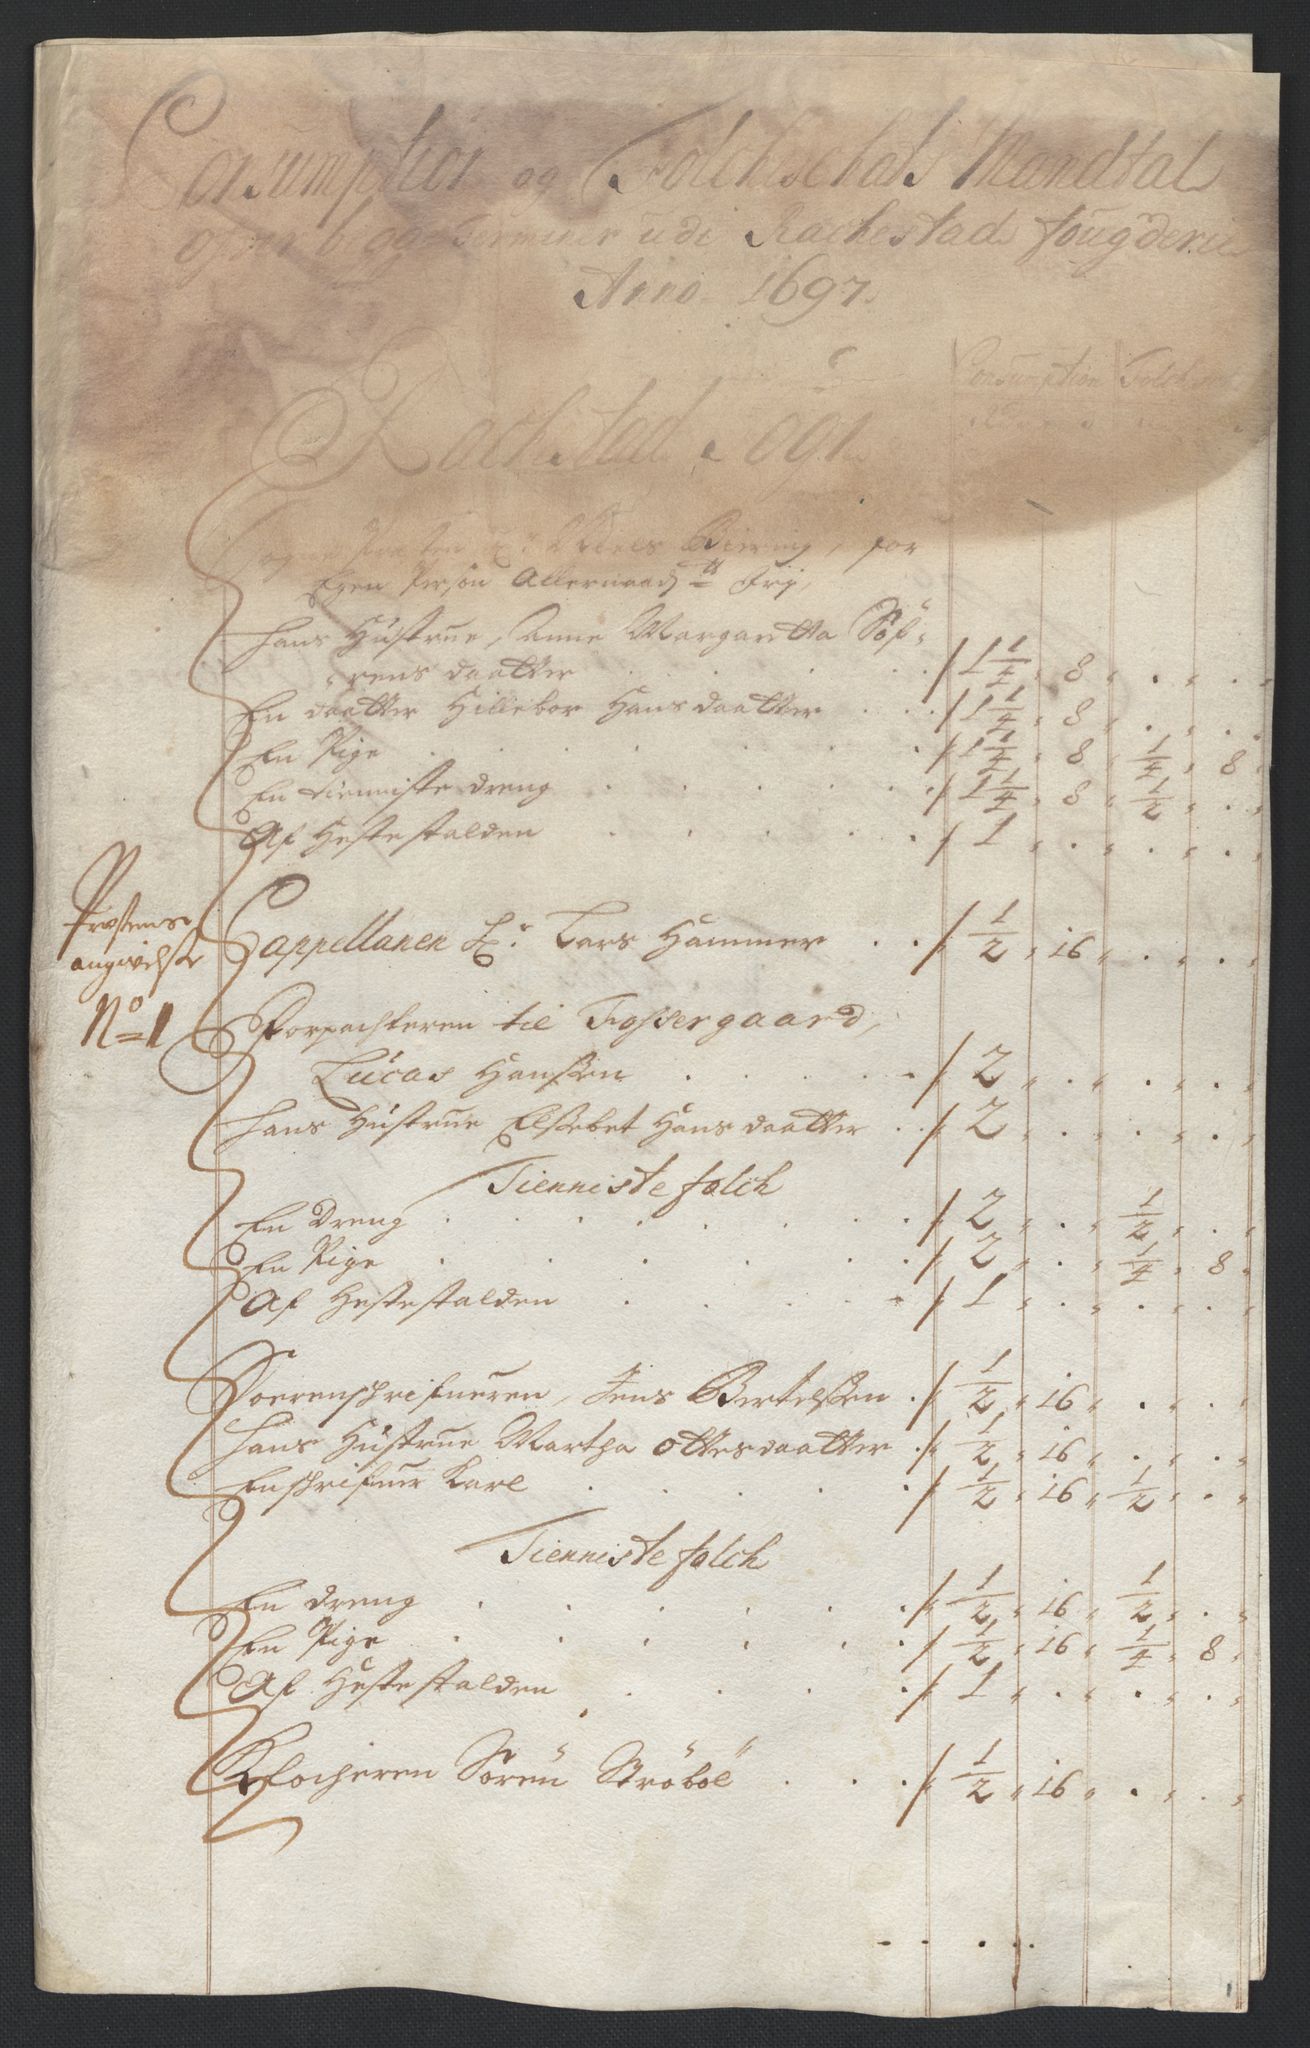 Consumption og Folcheschats Mandtal
ofver begge Terminer udi Rachestad fougderie
Anno 1697.
Consumption Folche
Rachestad Sogn
Sogne Præsten Hr Niels Biering, for
Egen Person Allernaadst Frij,
Hans Hustrue, Anne Margaretta Söf-
rens daatter . . . . / 1 1/4 . 8 . . . .
En daatter Hillebor Hansdaatter . . . / 1 1/4 . 8 . . . .
En Pige . . . . / 1 1/4 . 8 . 1/4 . 8
En tienniste dreng . . . . / 1 1/4 . 8 . 1/2 . .
Af Hestestalden . . . . / 1 . . . . . .
Præstens
angivelse
No 1
Cappellanen Hr. Lars Hammer . . / 1/2 . 16 . . . .
Forpachteren til Fossergaard,
Lucas Hanssen . . . . / 2 . . . . . .
Hans Hustrue Elsebet Hansdaatter . . / 2 . . . . . .
Tienniste folch
En Dreng . . . . / 2 . . . 1/2 . .
En Pige . . . . / 2 . . . 1/4 . 8
Af Hestestalden . . . . / 1 . . . . . .
Soerenschrifueren, Jens Bertelssen . / 1/2 . 16 . . . .
Hans Hustrue Martha Ottesdaatter . / 1/2 . 16 . . . .
En schrifuer Karl . . . . / 1/2 . 16 . 1/2 . .
Tienniste folch
En dreng . . . . / 1/2 . 16 . 1/2 . .
En Pige . . . . / 1/2 . 16 . 1/4 . 8
Af Hestestalden . . . . / 1 . . . . . .
Klocheren Sören Ströböl . . . / 1/2 . 16 . . . .